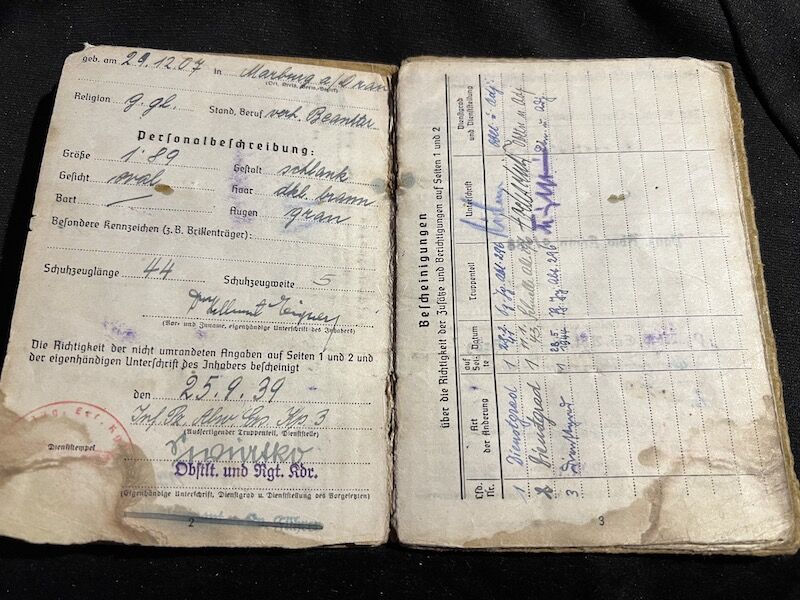 geb. am 29.12.07 in Marburg a/Drau
(Ort, Kreis, Verw.-Bezirk)
Religion g. gl. Stand, Beruf verh. Beamter
Personalbeschreibung:
Größe 1·89 Gestalt schlank
Gesicht oval Haar dkl. braun
Bart / Augen grau
Besondere Kennzeichen (z.B. Brillenträger):
Schuhzeuglänge 44 Schuhzeugweite 5
Dr. Hellmut
(Vor- und Zuname, eigenhändige Unterschrift des Inhabers)
Die Richtigkeit der nicht umrandeten Angaben auf Seiten 1 und 2 und
der eigenhändigen Unterschrift des Inhabers bescheinigt
den 25.9.39
Inf. Pz. Abw. Ers. Kp 3
(Ausfertigender Truppenteil, Dienststelle)
Dienststempel
Obstlt. und Rgt. Kdr.
(Eigenhändige Unterschrift, Dienstgrad u. Dienststellung des Vorgesetzten)
2
Bescheinigungen
über die Richtigkeit der Zusätze und Berichtigungen auf Seiten 1 und 2
Lfd. Nr. Art der Änderung auf Seite Datum Truppenteil Unterschrift Dienstgrad und Dienststellung
1 Dienstgrad 1 Pz. Jg. Abt. 296
2 Dienstgrad 1 11.1. 43
3 Dienstgrad 1 28.5. 1944 Pz. Jg. Abt. 296
3